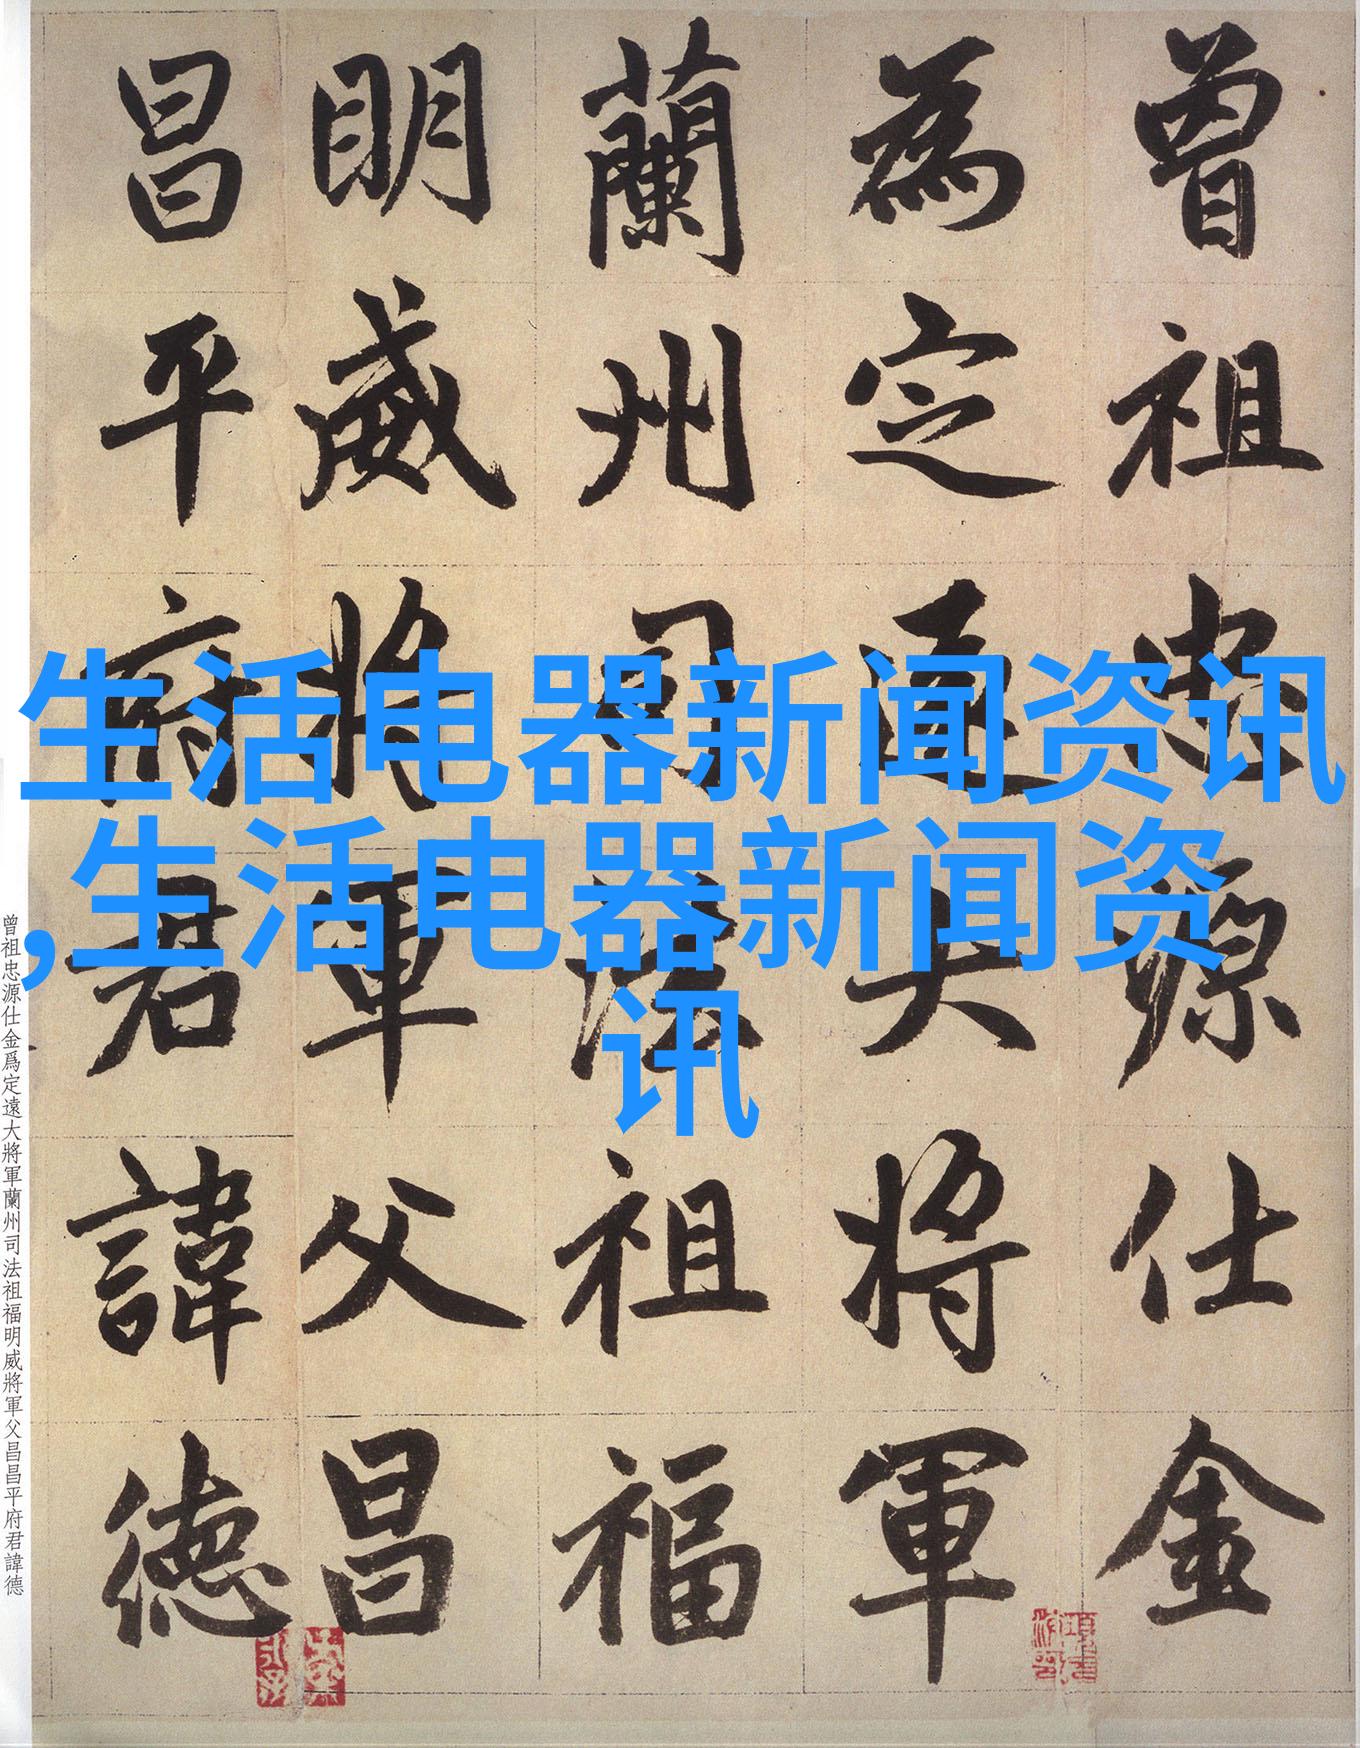 曾祖忠源仕金
為定遠大將軍
蘭州司法祖福
明威將軍父昌
昌平府君諱德
生活电器新闻资讯
,生活电器新闻资
讯
曾祖忠源仕金爲定遠大將軍蘭州司法祖福明威將軍父昌昌平府君諱德